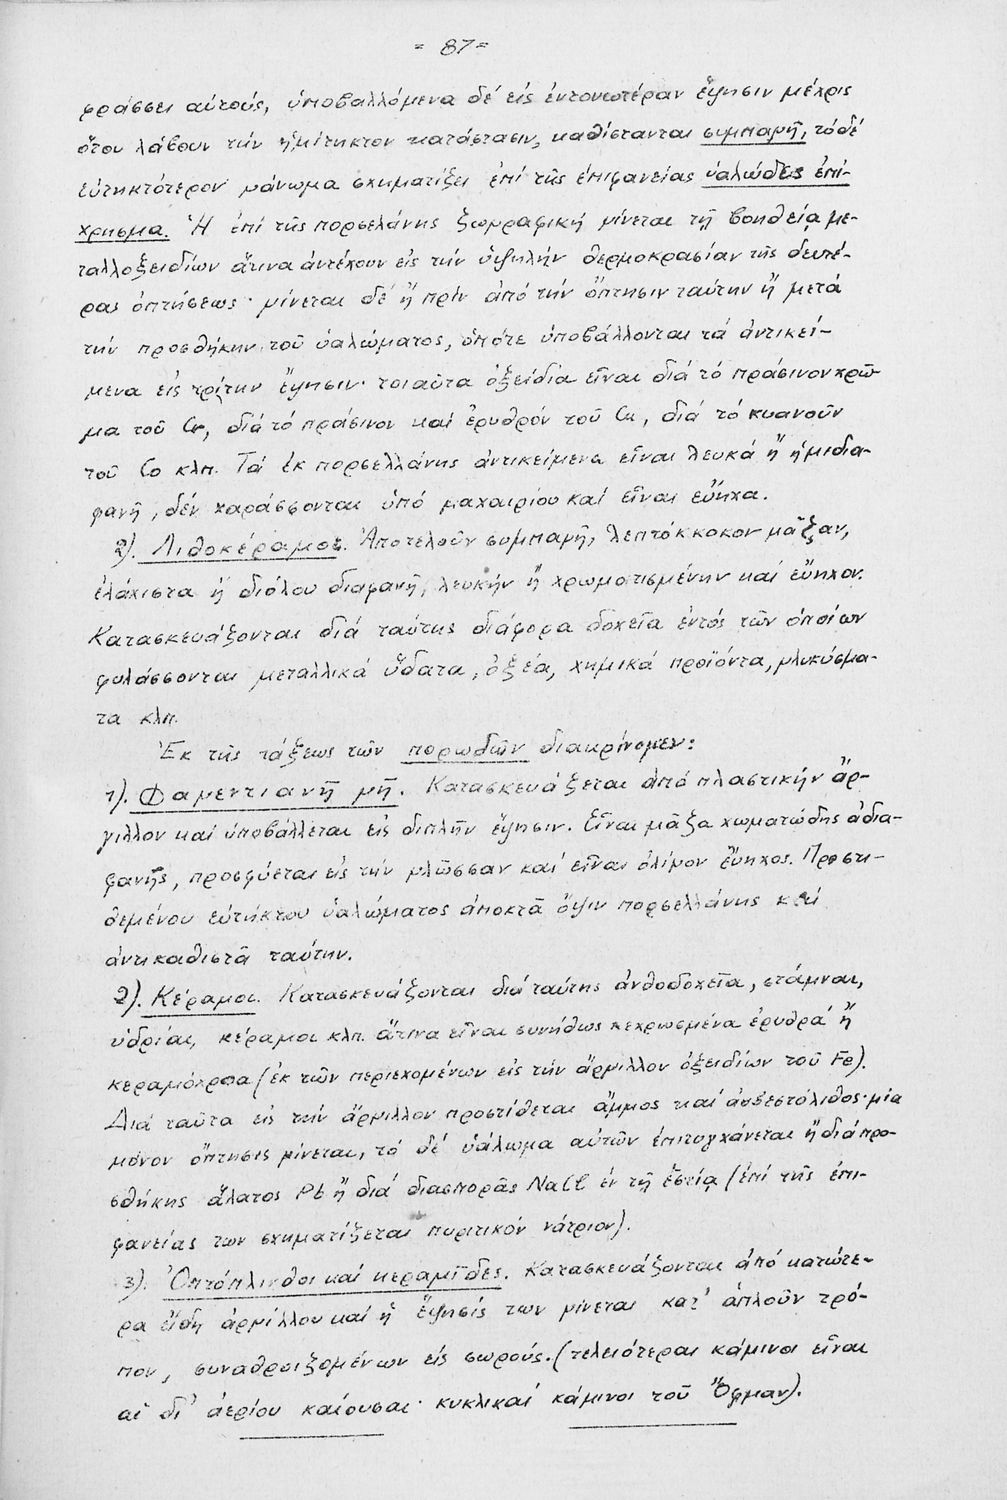 = 87 =
φράσσει αὐτούς, ὑποβαλλόμενα δέ εἰς ἐντονωτέραν ἔψησιν μέχρις
ὅτου λάβουν τήν ἡμίτηκτον κατάστασιν, καθίστανται συμπαγῆ, τό δέ
εὐτηκτότερον γάνωμα σχηματίζει ἐπί τῆς ἐπιφανείας ὑαλώδες ἐπί-
χρισμα. Ἡ ἐπί τῆς πορσελάνης ζωγραφική γίνεται τῇ βοηθείᾳ με-
ταλλοξειδίων ἅτινα ἀντέχουν εἰς τήν ὑψηλήν θερμοκρασίαν τῆς δευτέ-
ρας ὀπτήσεως· γίνεται δέ ἤ πρίν ἀπό τήν ὄπτησιν ταύτην ἤ μετά
τήν προσθήκην τοῦ ὑαλώματος, ὁπότε ὑποβάλλονται τά ἀντικεί-
μενα εἰς τρίτην ἔψησιν· τοιαῦτα ὀξείδια εἶναι διά τό πράσινον χρῶ-
μα τοῦ Cr, διά τό πράσινον καί ἐρυθρόν τοῦ Cu, διά τό κυανοῦν
τοῦ Co κλπ. Τά ἐκ πορσελλάνης ἀντικείμενα εἶναι λευκά ἤ ἡμιδια-
φανῆ, δέν χαράσσονται ὑπό μαχαιρίου καί εἶναι εὔηχα.
2). Λιθοκέραμος. Ἀποτελοῦν συμπαγῆ, λεπτόκκοκον μᾶζαν,
ἐλάχιστα ἤ διόλου διαφανῆ, λευκήν ἤ χρωματισμένην καί εὔηχον.
Κατασκευάζονται διά ταύτης διάφορα δοχεῖα ἐντός τῶν ὁποίων
φυλάσσονται μεταλλικά ὕδατα, ὀξέα, χημικά προϊόντα, γλυκύσμα-
τα κλπ.
Ἐκ τῆς τάξεως τῶν πορωδῶν διακρίνομεν:
1). Φαμεντιανή γῆ. Κατασκευάζεται ἀπό πλαστικήν ἄρ-
γιλλον καί ὑποβάλλεται εἰς διπλῆν ἔψησιν. Εἶναι μᾶζα χωματώδης ἀδια-
φανής, προσφύεται εἰς τήν γλῶσσαν καί εἶναι ὀλίγον εὔηχος. Προστι-
θεμένου εὐτήκτου ὑαλώματος ἀποκτᾶ ὄψιν πορσελλάνης καί
ἀντικαθιστᾶ ταύτην.
2). Κέραμοι. Κατασκευάζονται διά ταύτης ἀνθοδοχεῖα, στάμναι,
ὑδρίαι, κέραμοι κλπ. ἅτινα εἶναι συνήθως κεχρωσμένα ἐρυθρά ἤ
κεραμόχροα (ἐκ τῶν περιεχομένων εἰς τήν ἄργιλλον ὀξειδίων τοῦ Fe).
Διά ταῦτα εἰς τήν ἄργιλλον προστίθεται ἄμμος καί ἀσβεστόλιθος· μία
μόνον ὄπτησις γίνεται, τό δέ ὑάλωμα αὐτῶν ἐπιτυγχάνεται ἤ διά προ-
σθήκης ἅλατος Pb ἤ διά διασπορᾶς NaCl ἐν τῇ ἑστίᾳ (ἐπί τῆς ἐπι-
φανείας των σχηματίζεται πυριτικόν νάτριον).
3). Ὀπτόπλινθοι καί κεραμῖδες. Κατασκευάζονται ἀπό κατώτε-
ρα εἴδη ἀργίλλου καί ἡ ἔψησίς των γίνεται κατ' ἁπλοῦν τρό-
πον, συναθροιζομένων εἰς σωρούς. (τελειότεραι κάμινοι εἶναι
αἱ δι' ἀερίου καίουσαι· κυκλικαί κάμινοι τοῦ Ὄφμαν).